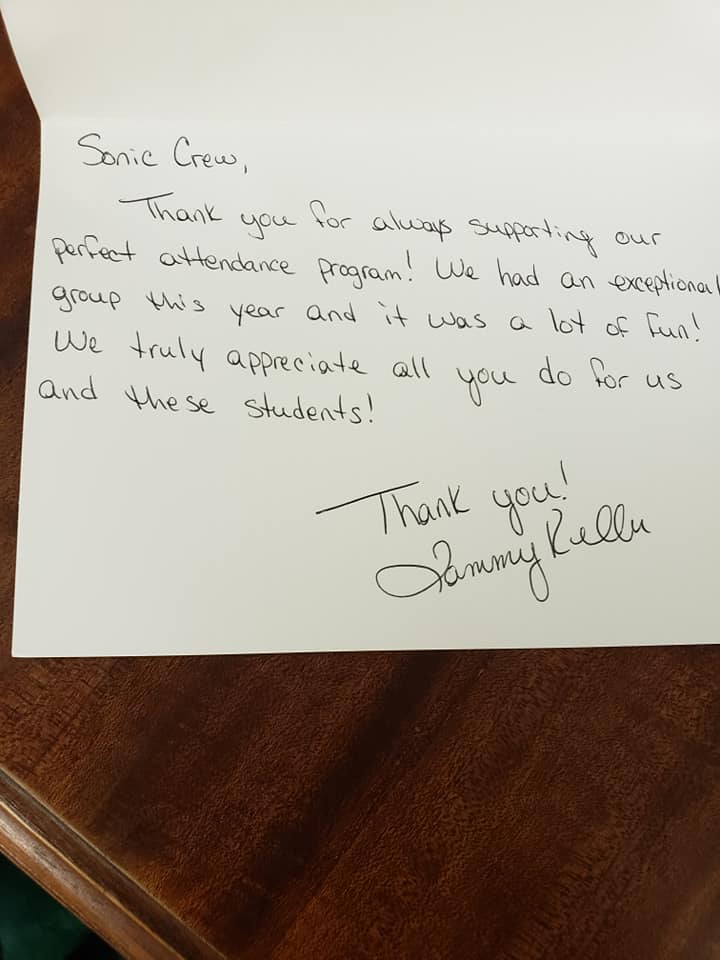 Sonic Crew,
Thank you for always supporting our
perfect attendance program! We had an exceptional
group this year and it was a lot of fun!
We truly appreciate all you do for us
and these students!
Thank you!
Tammy